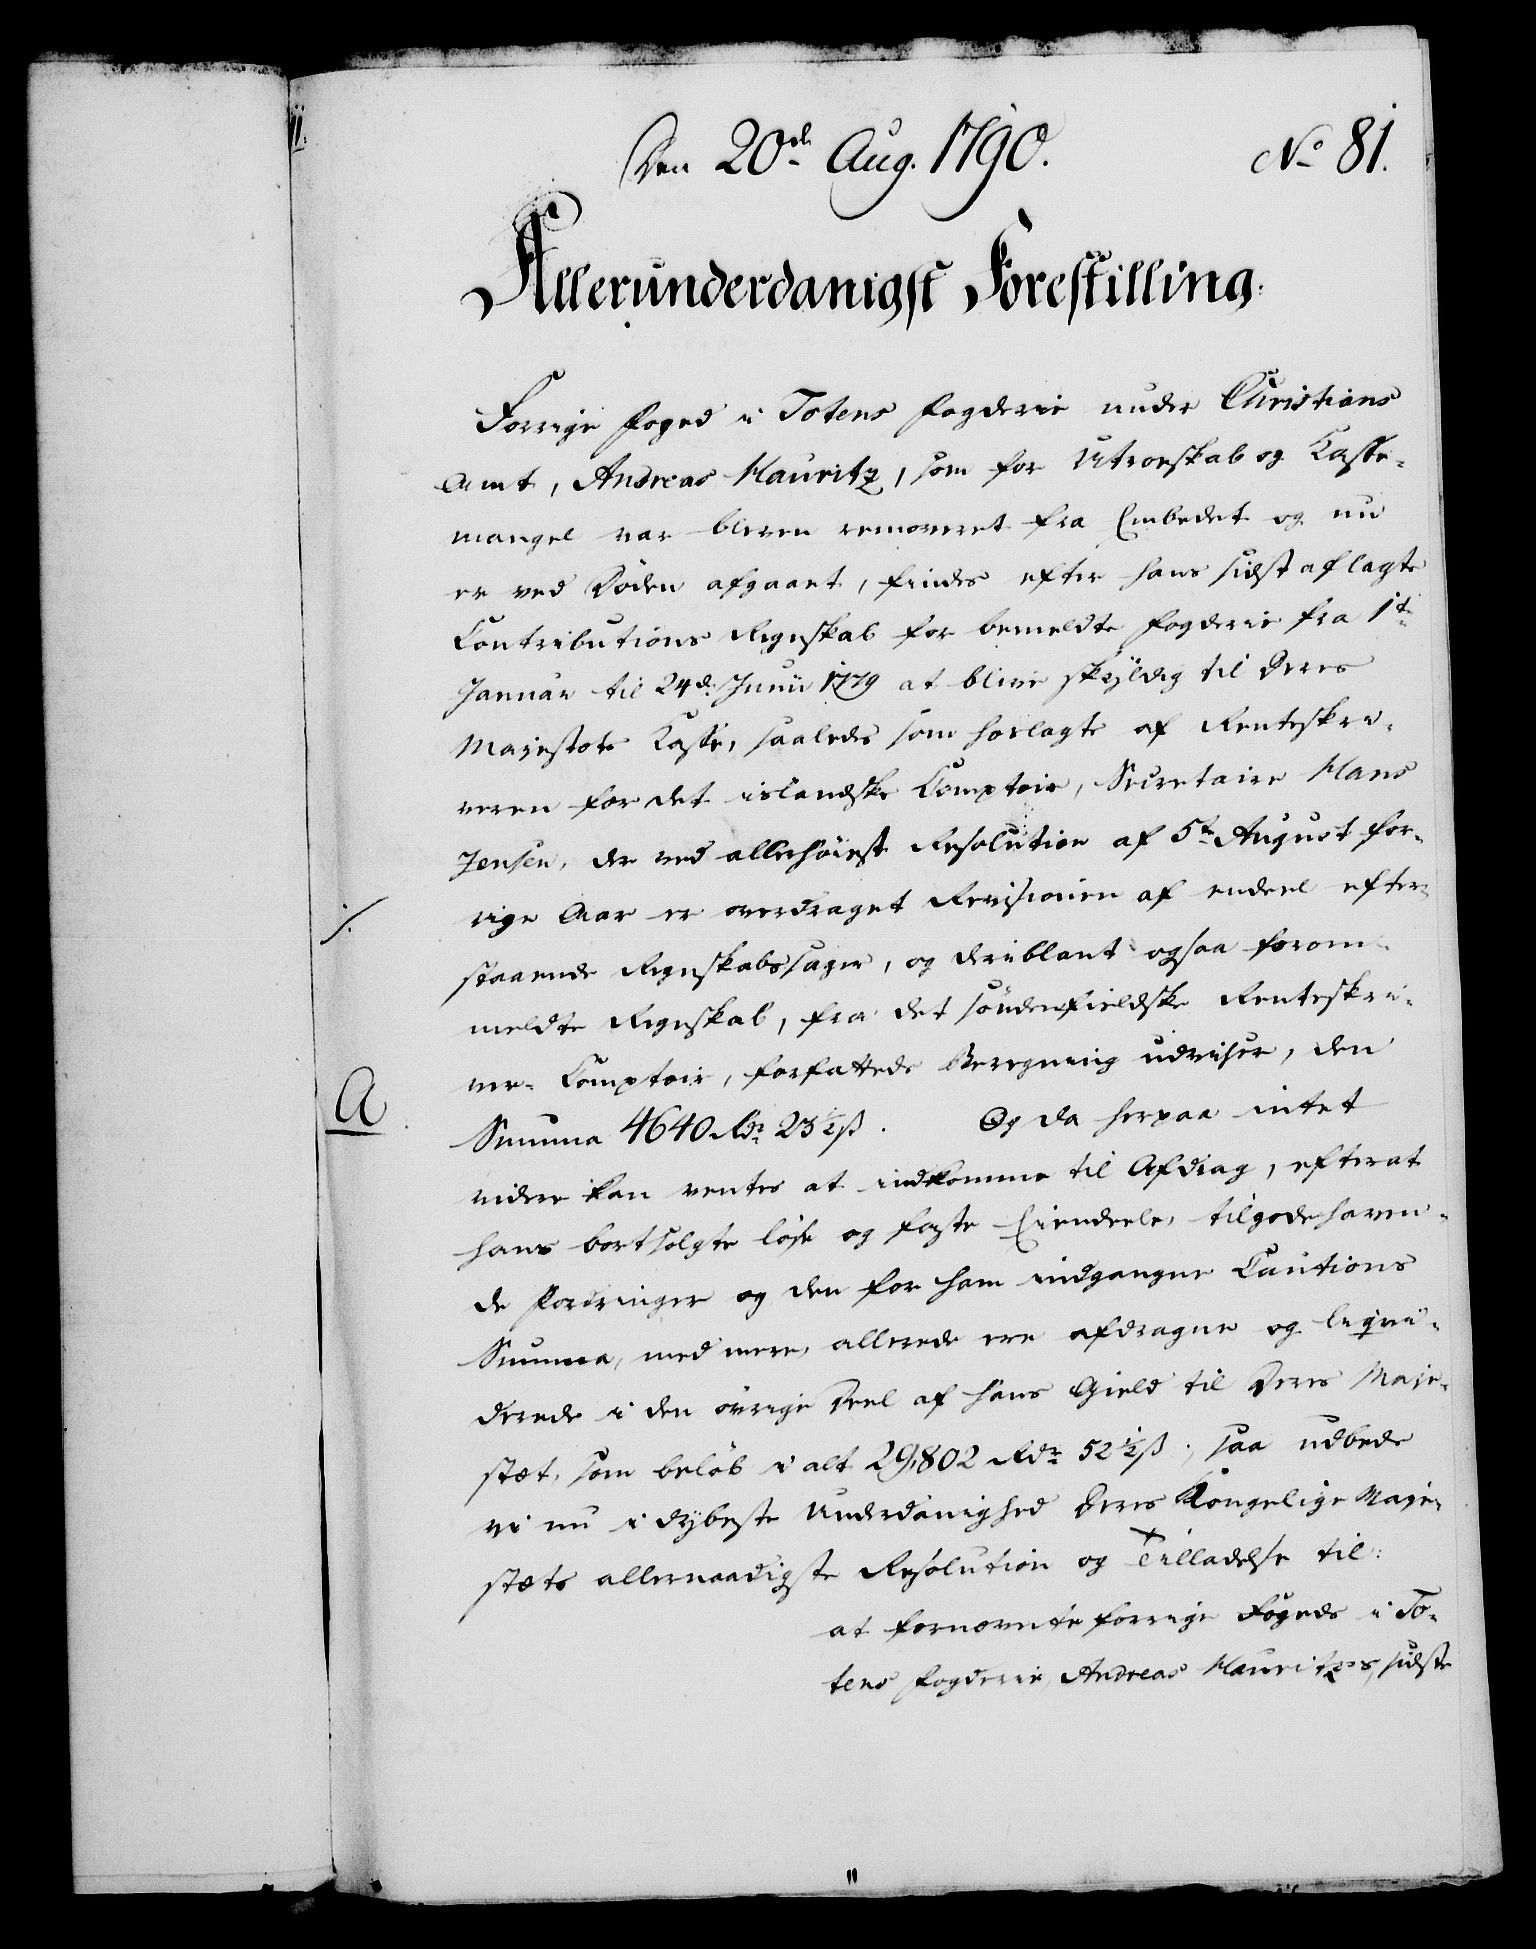 Den 20de Aug. 1790.
No 81.
Allerunderdanigst Forestilling.
Forrige Foged i Totens Fogderie under Christians
Amt, Andreas Mauritz, som for Utroeskab og Kasse-
mangel var bleven removeret fra Embedet og nu
er ved Døden afgaaet, findes efter hans sidst aflagte
Contributions Regnskab for bemeldte Fogderie fra 1te
Januar til 24de Junii 1779 at blive skyldig til Deres
Majestæts Kasse, saaledes som hoslagte af Renteskri-
veren for det islandske Comptoir, Secretaire Hans
Jensen, der ved allerhøieste Resolution af 5te August for-
rige Aar er overdraget Revisionen af endeel efter-
staaende Regnskabssager, og deriblant ogsaa forom-
meldte Regnskab, fra det søndenfieldske Renteskri-
ver-Comptoir, forfattede Beregning udviser, den
A
Summa 4640 Rdr 23½ ß. Og da herpaa intet
videre kan ventes at indkomme til Afdrag, efterat
hans bortsolgte løse og faste Eiendeele, tilgodehaven-
de Fordringer og den for ham indgangne Cautions
Summa, med mere, allerede ere afdragne og liqvi-
derede i den øvrige Deel af hans Gield til Deres Maje-
stæt, som beløb i alt 29,802 Rdr 52½ ß., saa udbede
vi nu i dybeste Underdanighed Deres Kongelige Maje-
stæts allernaadigste Resolution og Tilladelse til:
at fornævnte forrige Fogeds i To-
tens Fogderie, Andreas Mauritz's, sidste